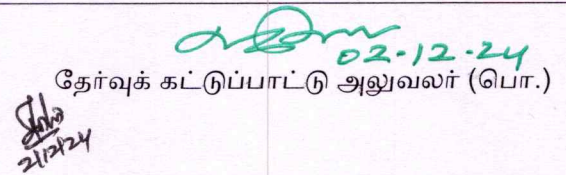 02-12-24
தேர்வுக் கட்டுப்பாட்டு அலுவலர் (பொ.)
2/12/24